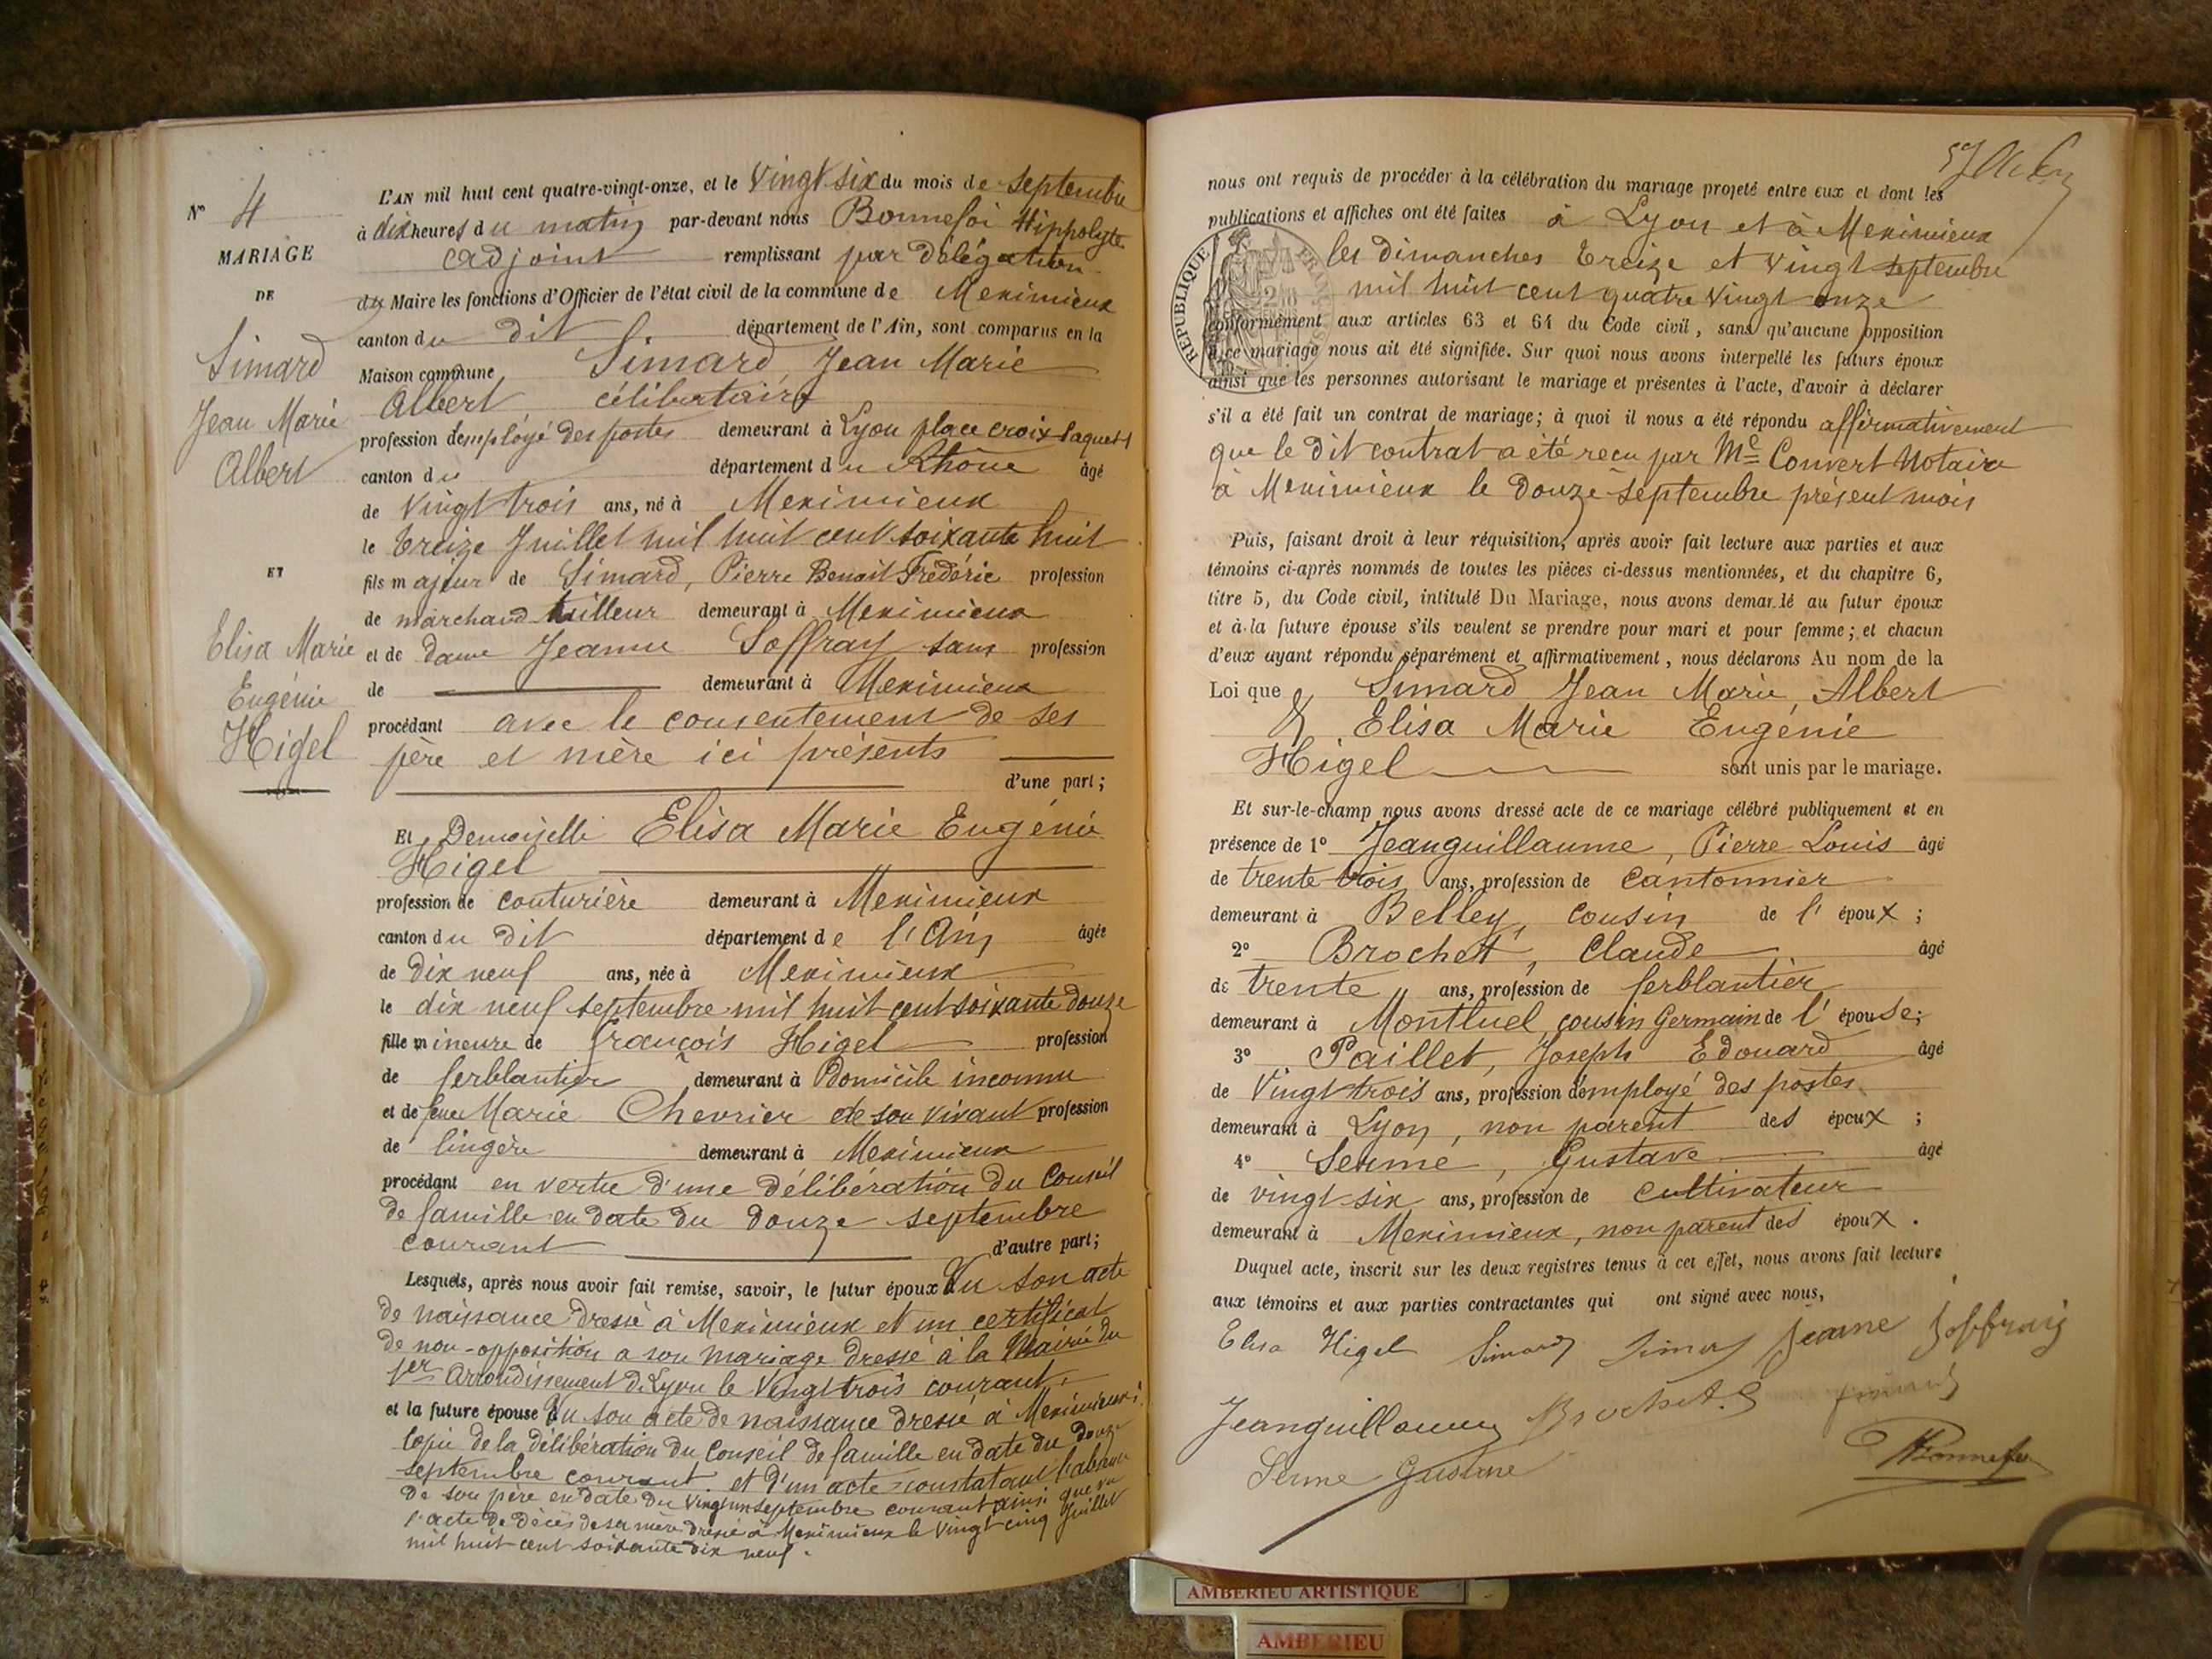 L'AN mil huit cent quatre-vingt-onze, et le Vingt six du mois de Septembre
N° 4
à dix heures du matin par-devant nous Bonnefoi Hippolyte
MARIAGE
adjoint remplissant par délégation
DE
du Maire les fonctions d'Officier de l'état civil de la commune de Meximieux
canton du dit département de l'Ain, sont comparus en la
Simard
Maison commune, Simard, Jean Marie
Jean Marie
Albert célibataire
profession d'employé des postes demeurant à Lyon place croix Paquet
Albert
canton du département du Rhône âgé
de Vingt trois ans, né à Meximieux
le treize Juillet mil huit cent soixante huit
ET
fils majeur de Simard, Pierre Benoit Frédéric profession
de marchand tailleur demeurant à Meximieux
Elisa Marie
et de dame Jeanne Soffray sans profession
Eugénie
de demeurant à Meximieux
Higel
procédant avec le consentement de ses
père et mère ici présents
d'une part;
Et Demoiselle Elisa Marie Eugénie
Higel
profession de couturière demeurant à Meximieux
canton du dit département de l'Ain âgée
de dix neuf ans, née à Meximieux
le dix neuf septembre mil huit cent soixante douze
fille mineure de françois Higel profession
de ferblantier demeurant à Domicile inconnu
et de feue Marie Chevrier de son vivant profession
de lingère demeurant à Meximieux
procédant en vertu d'une délibération du Conseil
de famille en date du douze septembre
courant d'autre part;
Lesquels, après nous avoir fait remise, savoir, le futur époux Vu son acte
de naissance dressé à Meximieux et un certificat
de non-opposition a son mariage dressé à la Mairie du
1er Arrondissement de Lyon le Vingt trois courant
et la future épouse Vu son acte de naissance dressé à Meximieux;
Copie de la délibération du Conseil de famille en date du douze
septembre courant et d'un acte constatant l'absence
de son père en date du vingt un septembre courant ainsi que vu
l'acte de décès de sa mère dressé à Meximieux le Vingt cinq Juillet
mil huit cent soixante dix neuf.
nous ont requis de procéder à la célébration du mariage projeté entre eux et dont les
publications et affiches ont été faites à Lyon et à Meximieux
les dimanches treize et vingt septembre
mil huit cent quatre vingt onze
REPUBLIQUE FRANÇAISE
conformément aux articles 63 et 64 du Code civil, sans qu'aucune opposition
à ce mariage nous ait été signifiée. Sur quoi nous avons interpellé les futurs époux
ainsi que les personnes autorisant le mariage et présentes à l'acte, d'avoir à déclarer
s'il a été fait un contrat de mariage; à quoi il nous a été répondu affirmativement
que le dit contrat a été reçu par Me Convert Notaire
à Meximieux le douze septembre présent mois
Puis, faisant droit à leur réquisition, après avoir fait lecture aux parties et aux
témoins ci-après nommés de toutes les pièces ci-dessus mentionnées, et du chapitre 6,
titre 5, du Code civil, intitulé Du Mariage, nous avons demandé au futur époux
et à la future épouse s'ils veulent se prendre pour mari et pour femme; et chacun
d'eux ayant répondu séparément et affirmativement, nous déclarons Au nom de la
Loi que Simard Jean Marie, Albert
& Elisa Marie Eugénie
Higel sont unis par le mariage.
Et sur-le-champ nous avons dressé acte de ce mariage célébré publiquement et en
présence de 1° Jeanguillaume, Pierre Louis âgé
de trente trois ans, profession de Cantonnier
demeurant à Belley, cousin de l'époux;
2° Brochet, Claude âgé
de trente ans, profession de ferblantier
demeurant à Montluel, cousin Germain de l'épouse;
3° Paillet, Joseph Edouard âgé
de Vingt trois ans, profession d'employé des postes
demeurant à Lyon, non parent des époux;
4° Serme, Gustave âgé
de vingt six ans, profession de Cultivateur
demeurant à Meximieux, non parent des époux.
Duquel acte, inscrit sur les deux registres tenus à cet effet, nous avons fait lecture
aux témoins et aux parties contractantes qui ont signé avec nous,
Elisa Higel Simard Simard Jeanne Soffray
Jeanguillaume Brochet. C
Serme Gustave Bonnefoi
AMBERIEU ARTISTIQUE
AMBERIEU